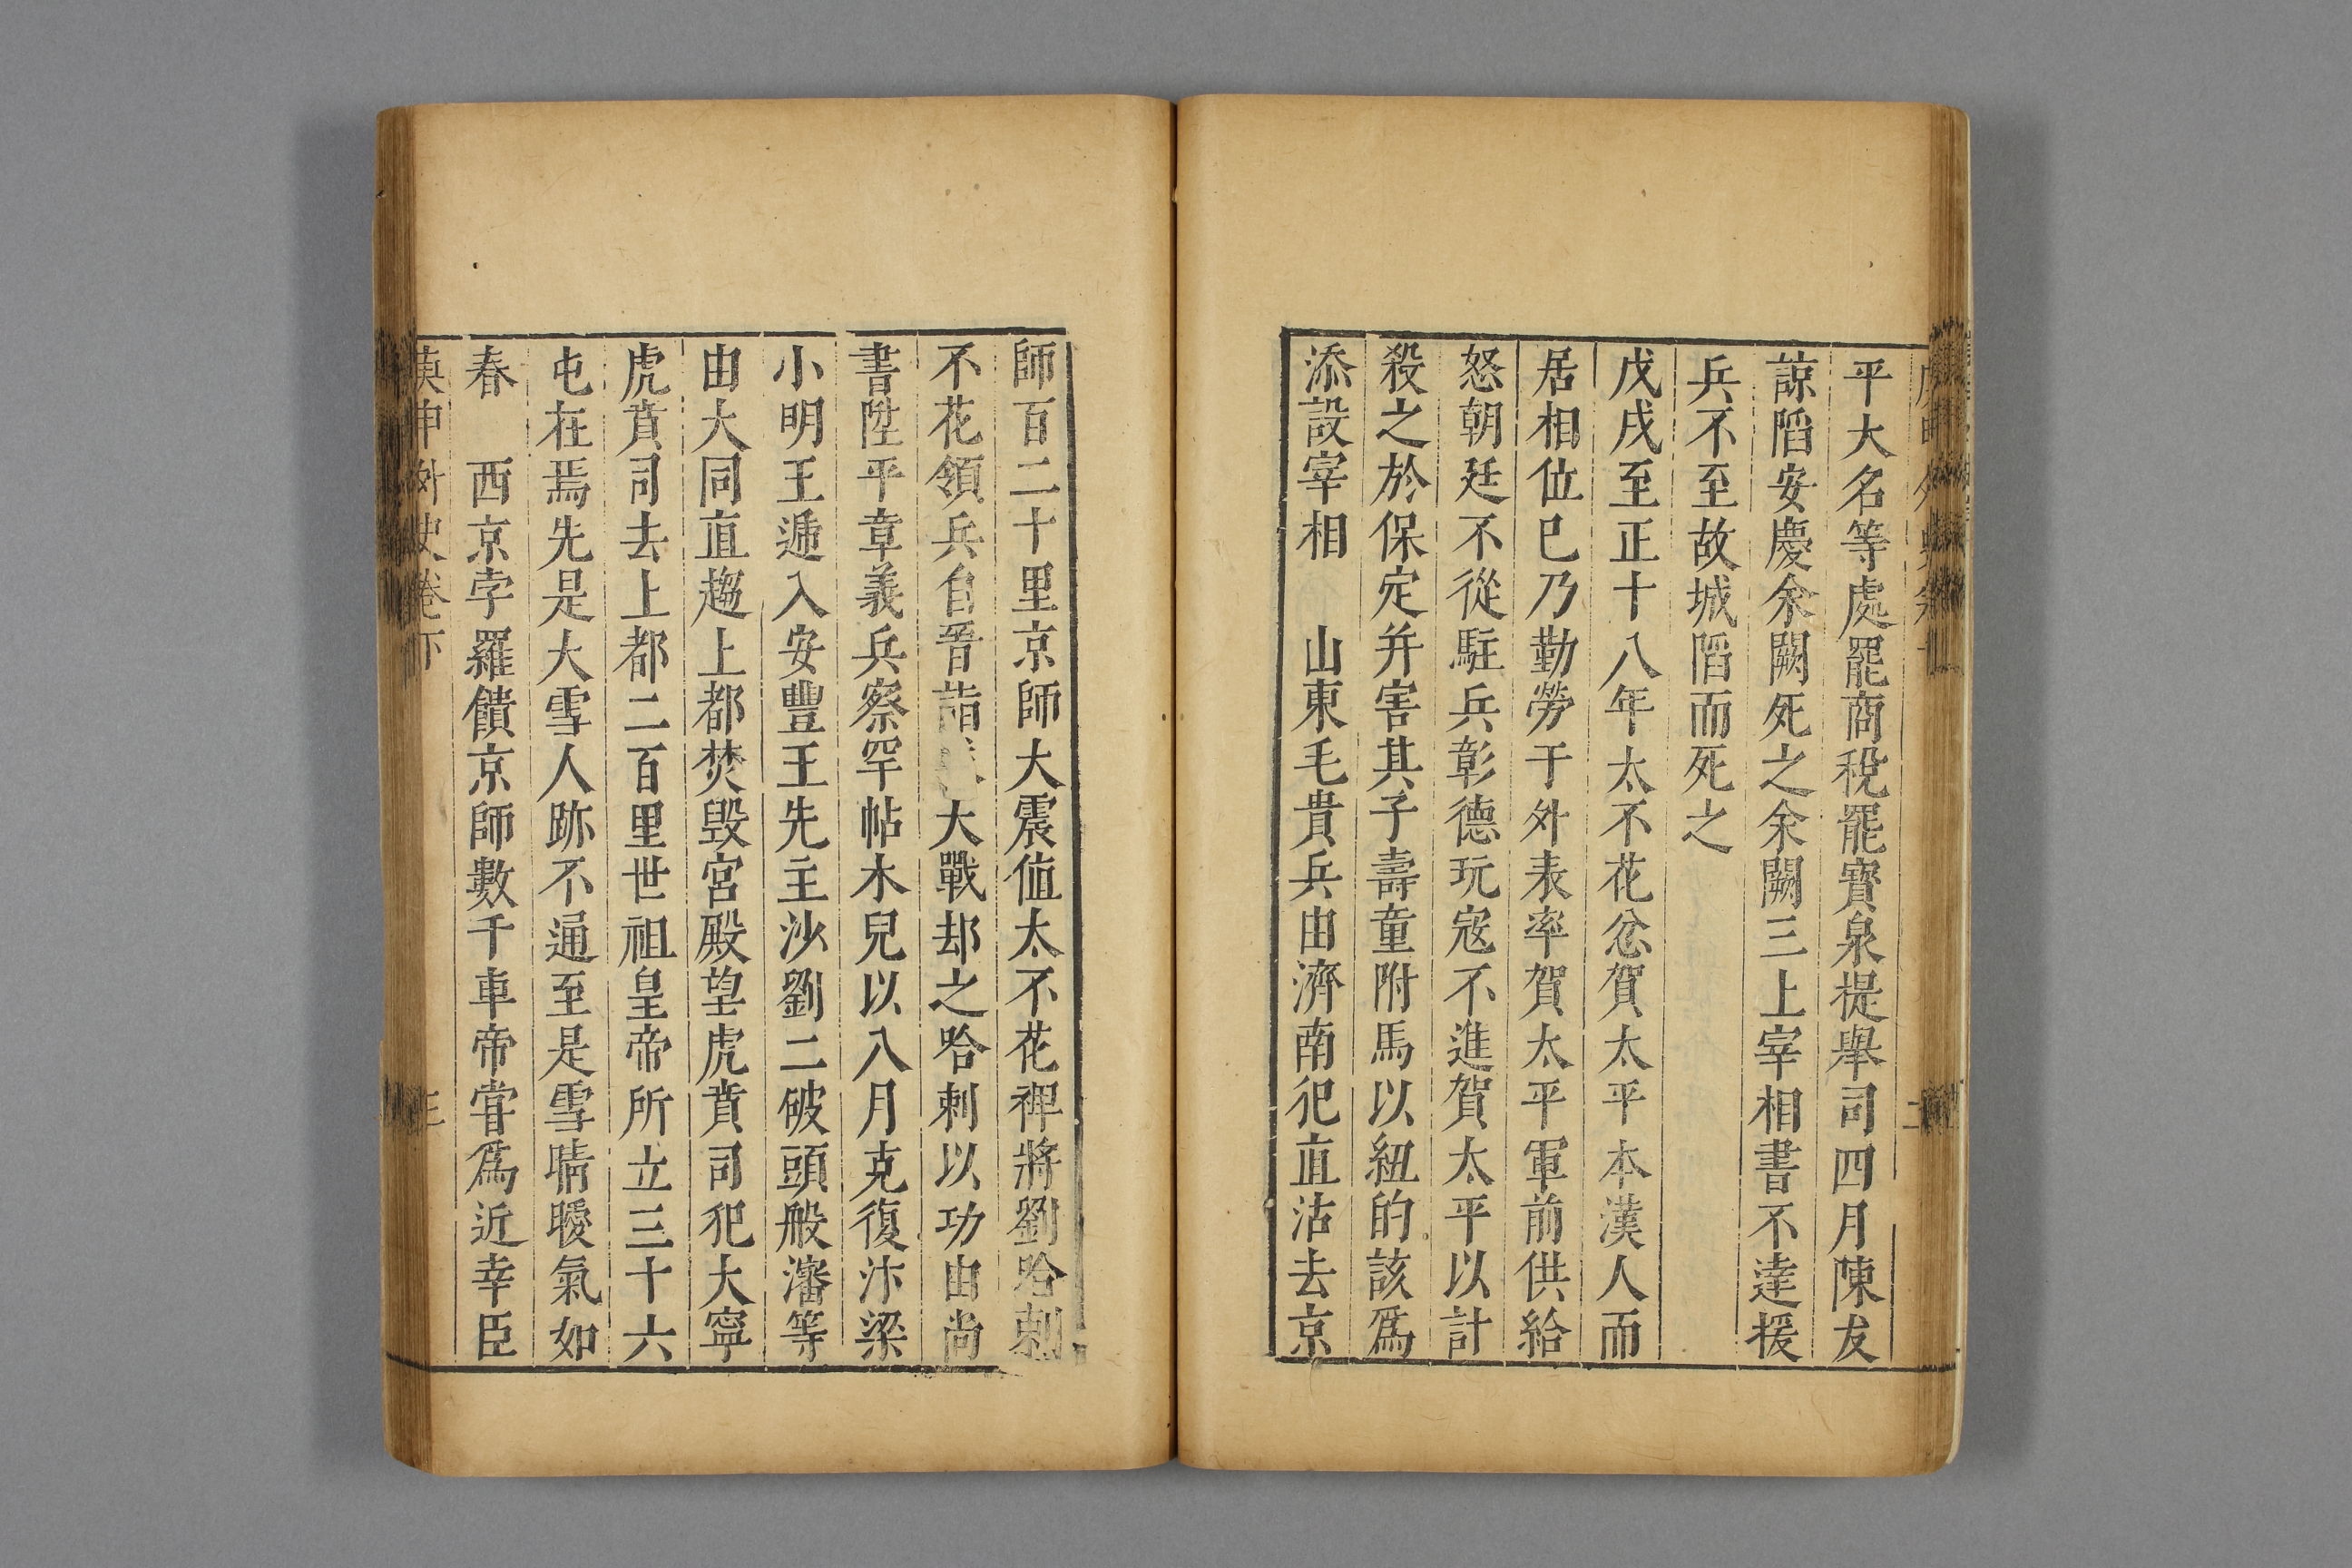 平大名等處罷商稅罷寳泉提舉司四月陳友
諒䧟安慶余闕死之余闕三上宰相書不達援
兵不至故城䧟而死之
戊戌至正十八年太不花忿賀太平本漢人而
居相位巳乃勤勞于外表率賀太平軍前供給
怒朝廷不從駐兵彰德玩寇不進賀太平以計
殺之於保定并害其子壽童附馬以紐的該爲
添設宰相　山東毛貴兵由濟南犯直沽去京
師百二十里京師大震値太不花裨將劉哈剌
不花領兵自晉詣　大戰却之哈剌以功由尚
書陞平章義兵察罕帖木兒以八月克復汴梁
小明王遁入安豐王先主沙劉二破頭般瀋等
由大同直趨上都焚毀宮殿望虎賁司犯大寧
虎賁司去上都二百里世祖皇帝所立三十六
屯在焉先是大雪人跡不通至是雪晴暖氣如
春　西京孛羅饋京師數千車帝嘗爲近幸臣
庚申外史卷下